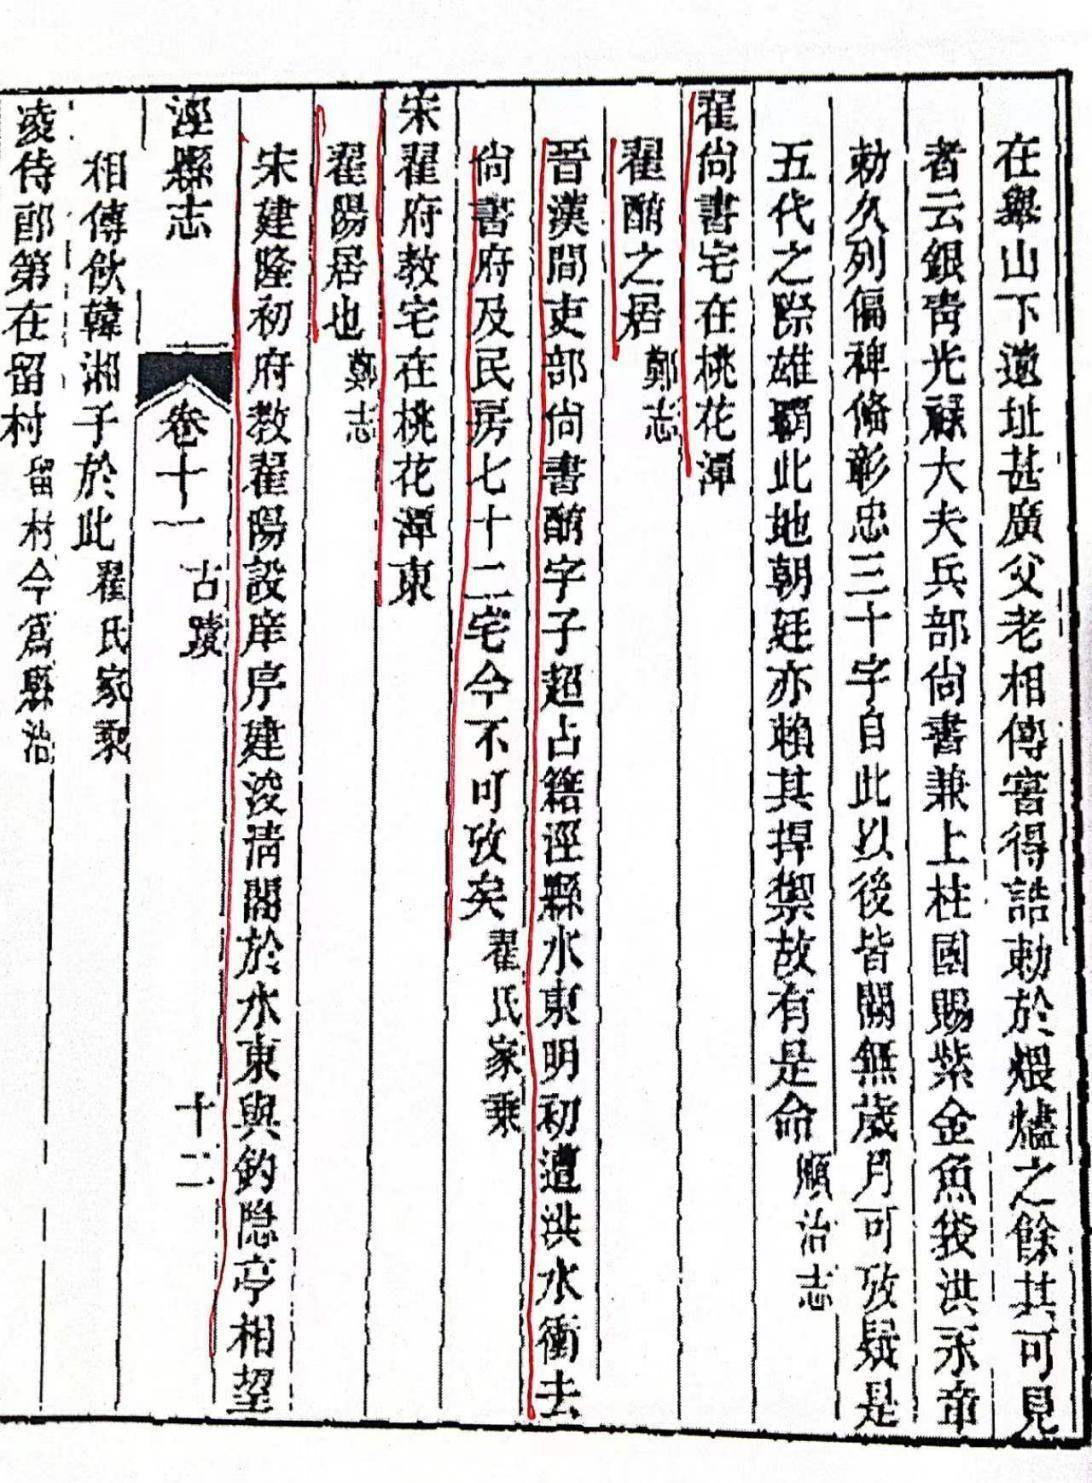 在轝山下遺址甚廣父老相傳嘗得誥勅於煨爐之餘其可見
者云銀青光祿大夫兵部尙書兼上柱國賜紫金魚袋洪永章
勅久列偏裨備彰忠三十字自此以後皆闕無歲月可攷疑是
五代之際雄覇此地朝廷亦賴其捍禦故有是命順治志
翟尙書宅在桃花潭
翟酺之居鄭志
晉漢間吏部尙書酺字子超占籍涇縣水東明初遭洪水衝去
尙書府及民房七十二宅今不可攷矣翟氏家乘
宋翟府教宅在桃花潭東
翟陽居也鄭志
宋建隆初府教翟陽設庠序建浚清閣於水東與釣隐亭相望
涇縣志
卷十一
古蹟
十二
相傳飲韓湘子於此翟氏家乘
凌侍郎第在留村留村今爲縣治